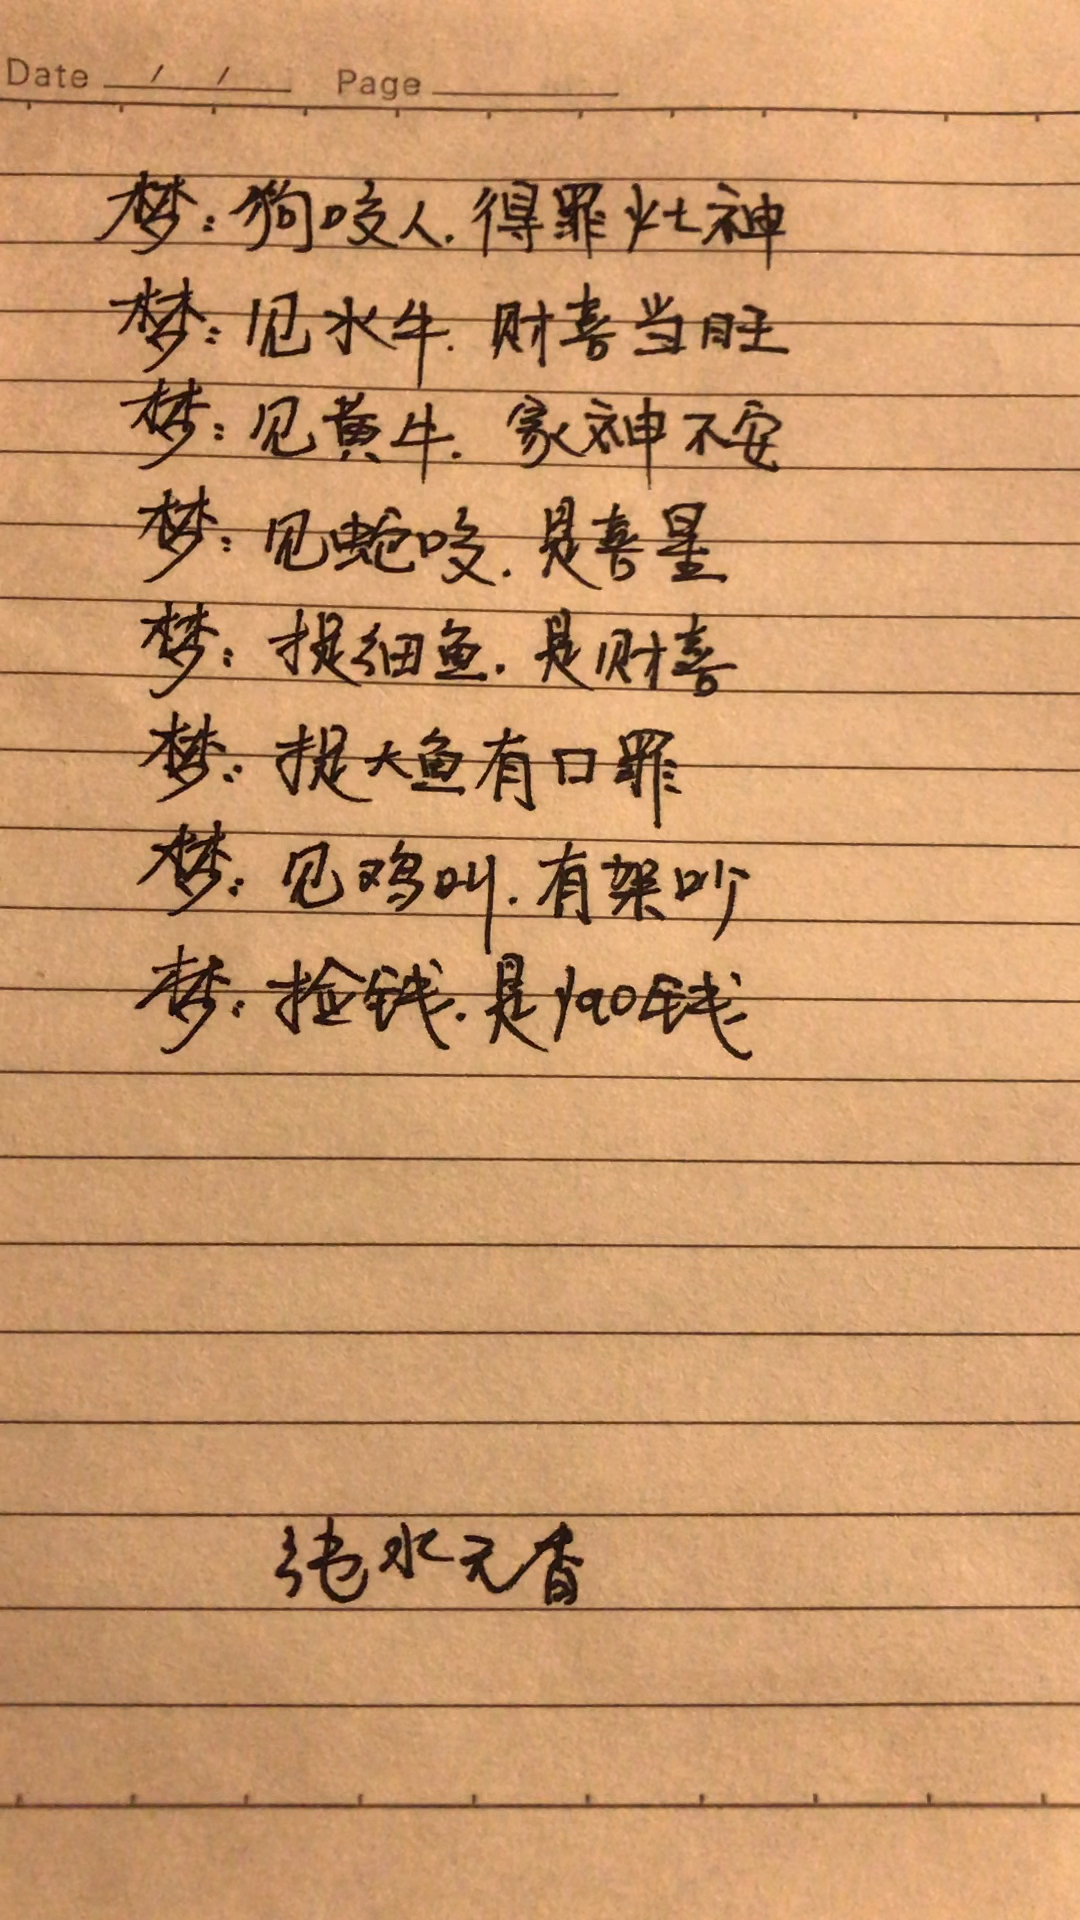 Date / / Page
梦：狗咬人.得罪灶神
梦：见水牛.财喜当旺
梦：见黄牛.家神不安
梦：见蛇咬.是喜星
梦：捉细鱼.是财喜
梦：捉大鱼有口罪
梦：见鸡叫.有架吵
梦：捡钱.是钱
纯水无香